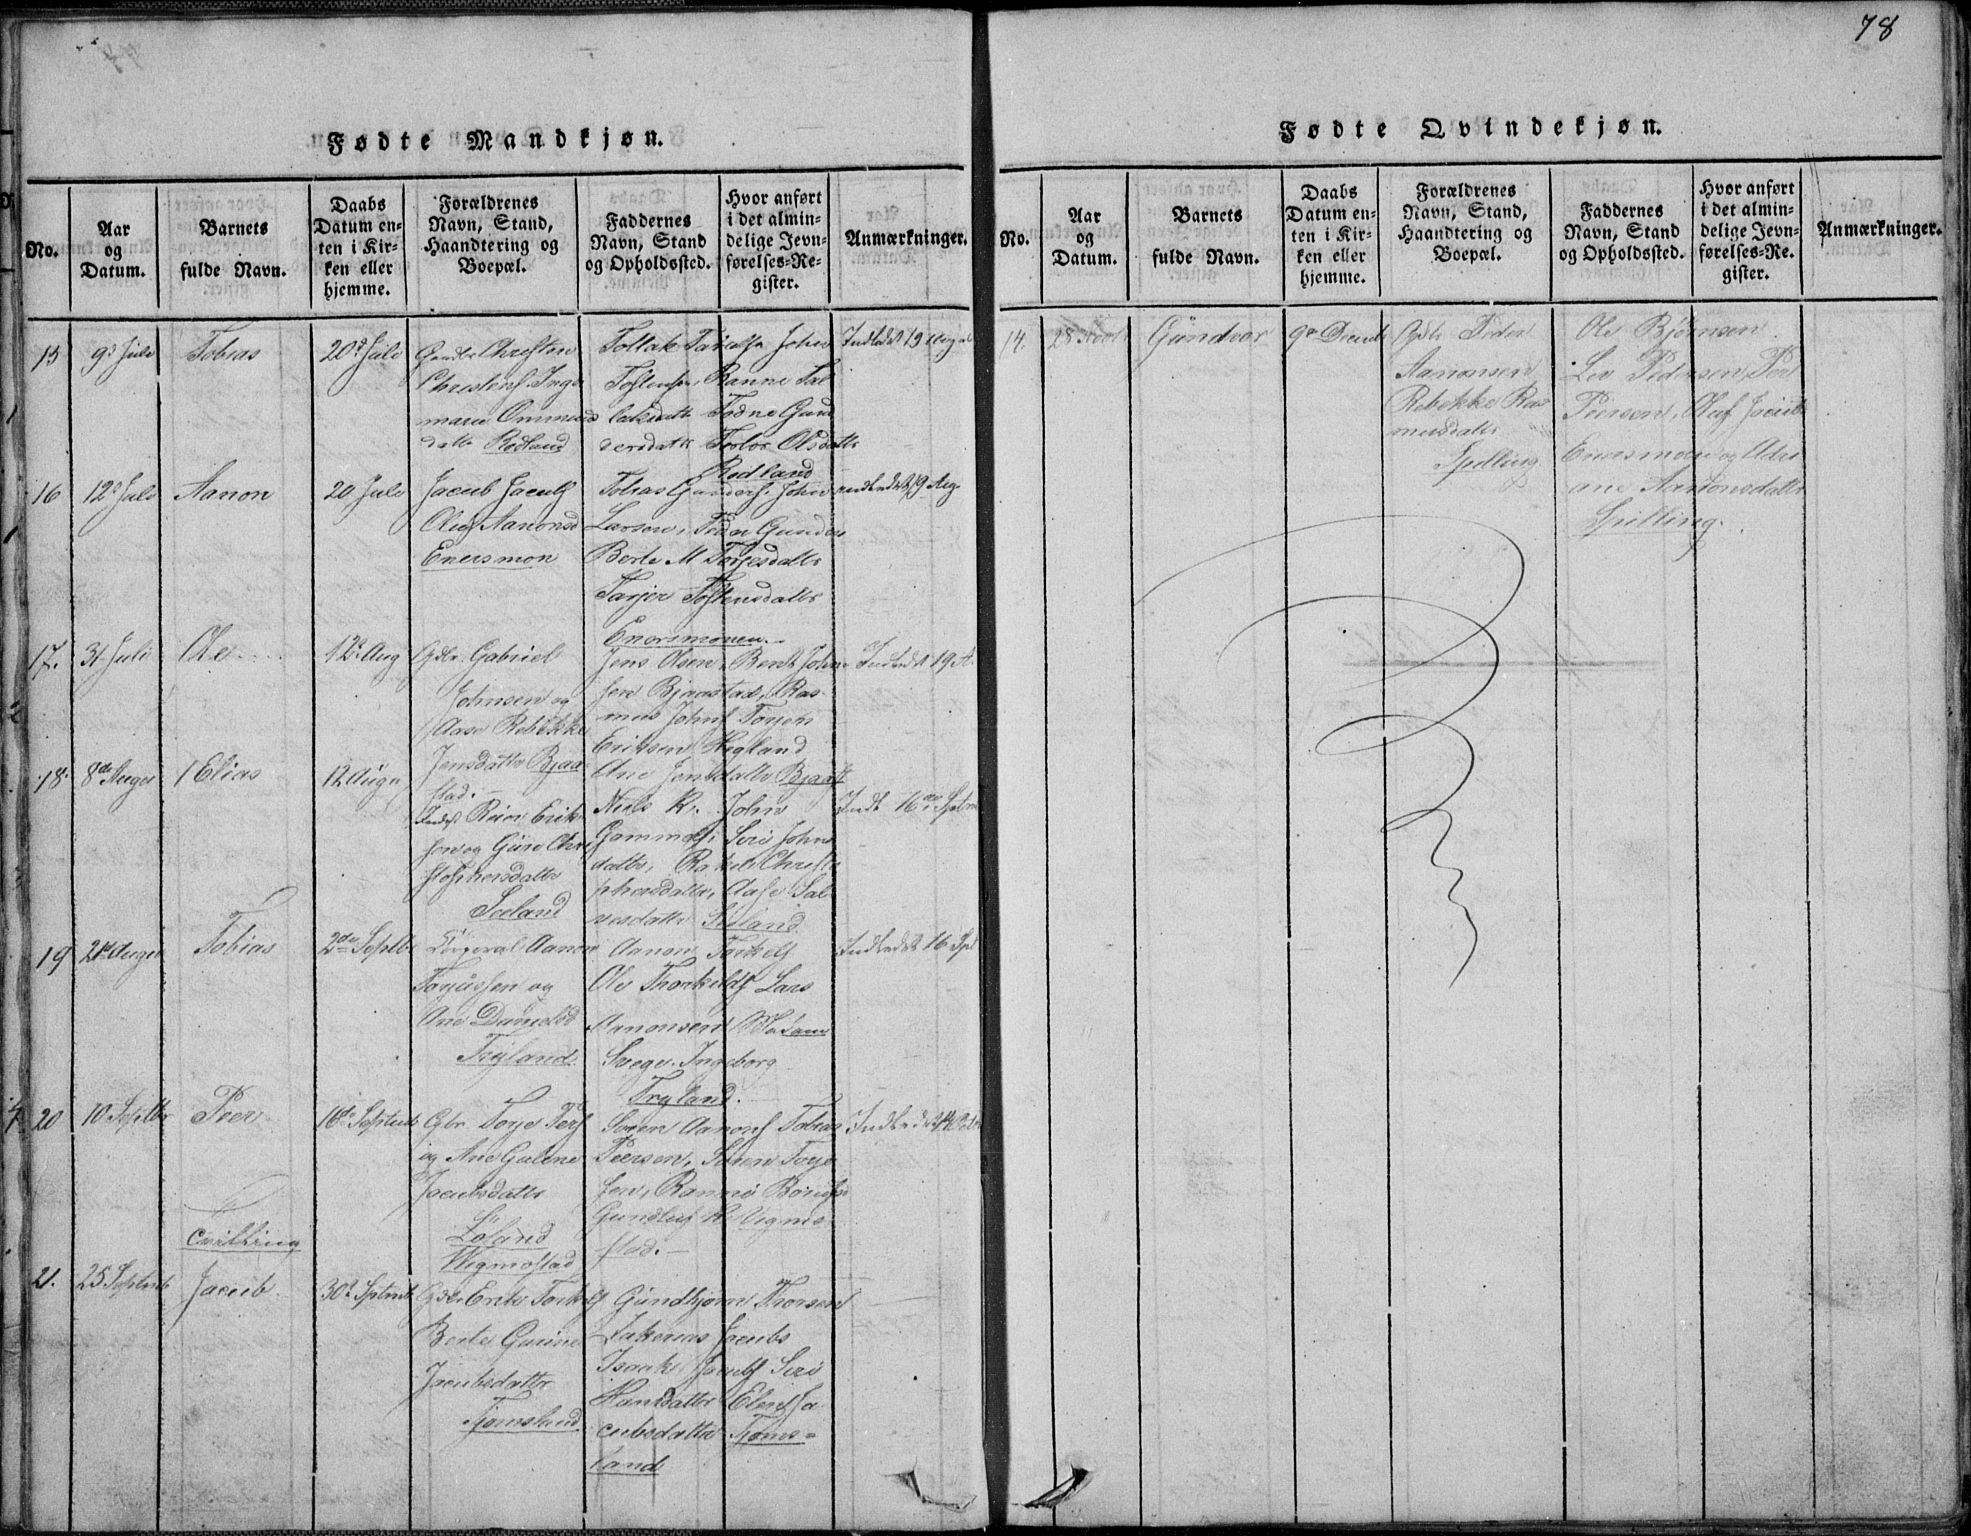 78
Fødte Mandkjøn.
No.
Aar
og
Datum.
Barnets
fulde Navn.
Daabs
Datum en-
ten i Kir-
ken eller
hjemme.
Forældrenes
Navn, Stand,
Haandtering og
Boepæl.
Faddernes
Navn, Stand
og Opholdssted.
Hvor anført
i det almin-
delige Jevn-
førelses-Re-
gister.
Anmærkninger.
15
9d Juli
Tobias
20d Juli
Christen
Christens Inge
marie Ommunds
datter Rødland
Tollak John
Tostensen, Ranne Sal
Tedne Gun
dersdatter Olsdatter
Rødland
16
12d Juli
Aanon
20 Juli
Jacob Jacobs
Aanonsd
Enersmon
Tobias Gunders. John
Larsen, Gunders
Berte M Torjesdatter
Tarjer Tostensdatter
Enersmonen.
17.
31 Juli
Ole
12d Aug
Gdbr Gabriel
Johnsen og
Aase Rebekke
Jensdatter Bjaa-
stad.
Jens Olsen, Bent John-
sen Bjaastad, Ras-
mus Johns
Eriksen Høgland
Ane Jensdatter Bjaast
Indledt 19 A.
18.
8de August
Elias
12 Augu
Reier Erik-
sen og Guro Chri
stophersdatter
Seeland
Niels K. John
Gammels, Siri Johns
datter, Rakel Christo
phersdatter, Aase Sal
vesdatter Seeland
Indt 16de Septem
19
21 August
Tobias
2den Septbr
Aanon
Torjussen og
Ane Danielsd
Tryland
Aanon Torkels
Ole Thorkelds Lars
Aanonsen Madame
Svege. Ingeborg
Tryland.
Indledet 16 Sept
20
10 Septbr
Peer
16de Septemb
Gbr Torje Pers
og Ane Gulene
Jacobsdatter
Løland
Wigmostad
Søren Aanons Tobias
Peersen, Søren Torje
sen, Ranne
Vigmo-
stad.
Tvilling
21.
25 Septemb
Jacob
30d Septemb
Gdbr Erik Torkels
Berte Gurine
Jacobsdatter
Tjomsland
Gundbjørn Thorsen
Zakarias Jacobs
Isaak Jacobs Siri
Hansdatter Elen Ja
cobsdatter Tjoms-
land
Fødte Qvindekjøn.
No.
Aar
og
Datum.
Barnets
fulde Navn.
Daabs
Datum en-
ten i Kir-
ken eller
hjemme.
Forældrenes
Navn, Stand,
Haandtering og
Boepæl.
Faddernes
Navn, Stand
og Opholdssted.
Hvor anført
i det almin-
delige Jevn-
førelses-Re-
gister.
Anmærkninger.
14.
28
Gundvor
9de
Gdbr Peder
Aanonsen
Rebekke Ras
musdatter
Spilling
Ole Bjørnsen
Lev Pedersen, Per
Peersen, Oluf Jacob
Enersmon og Adri
ane Aanonsdatter
Spilling.